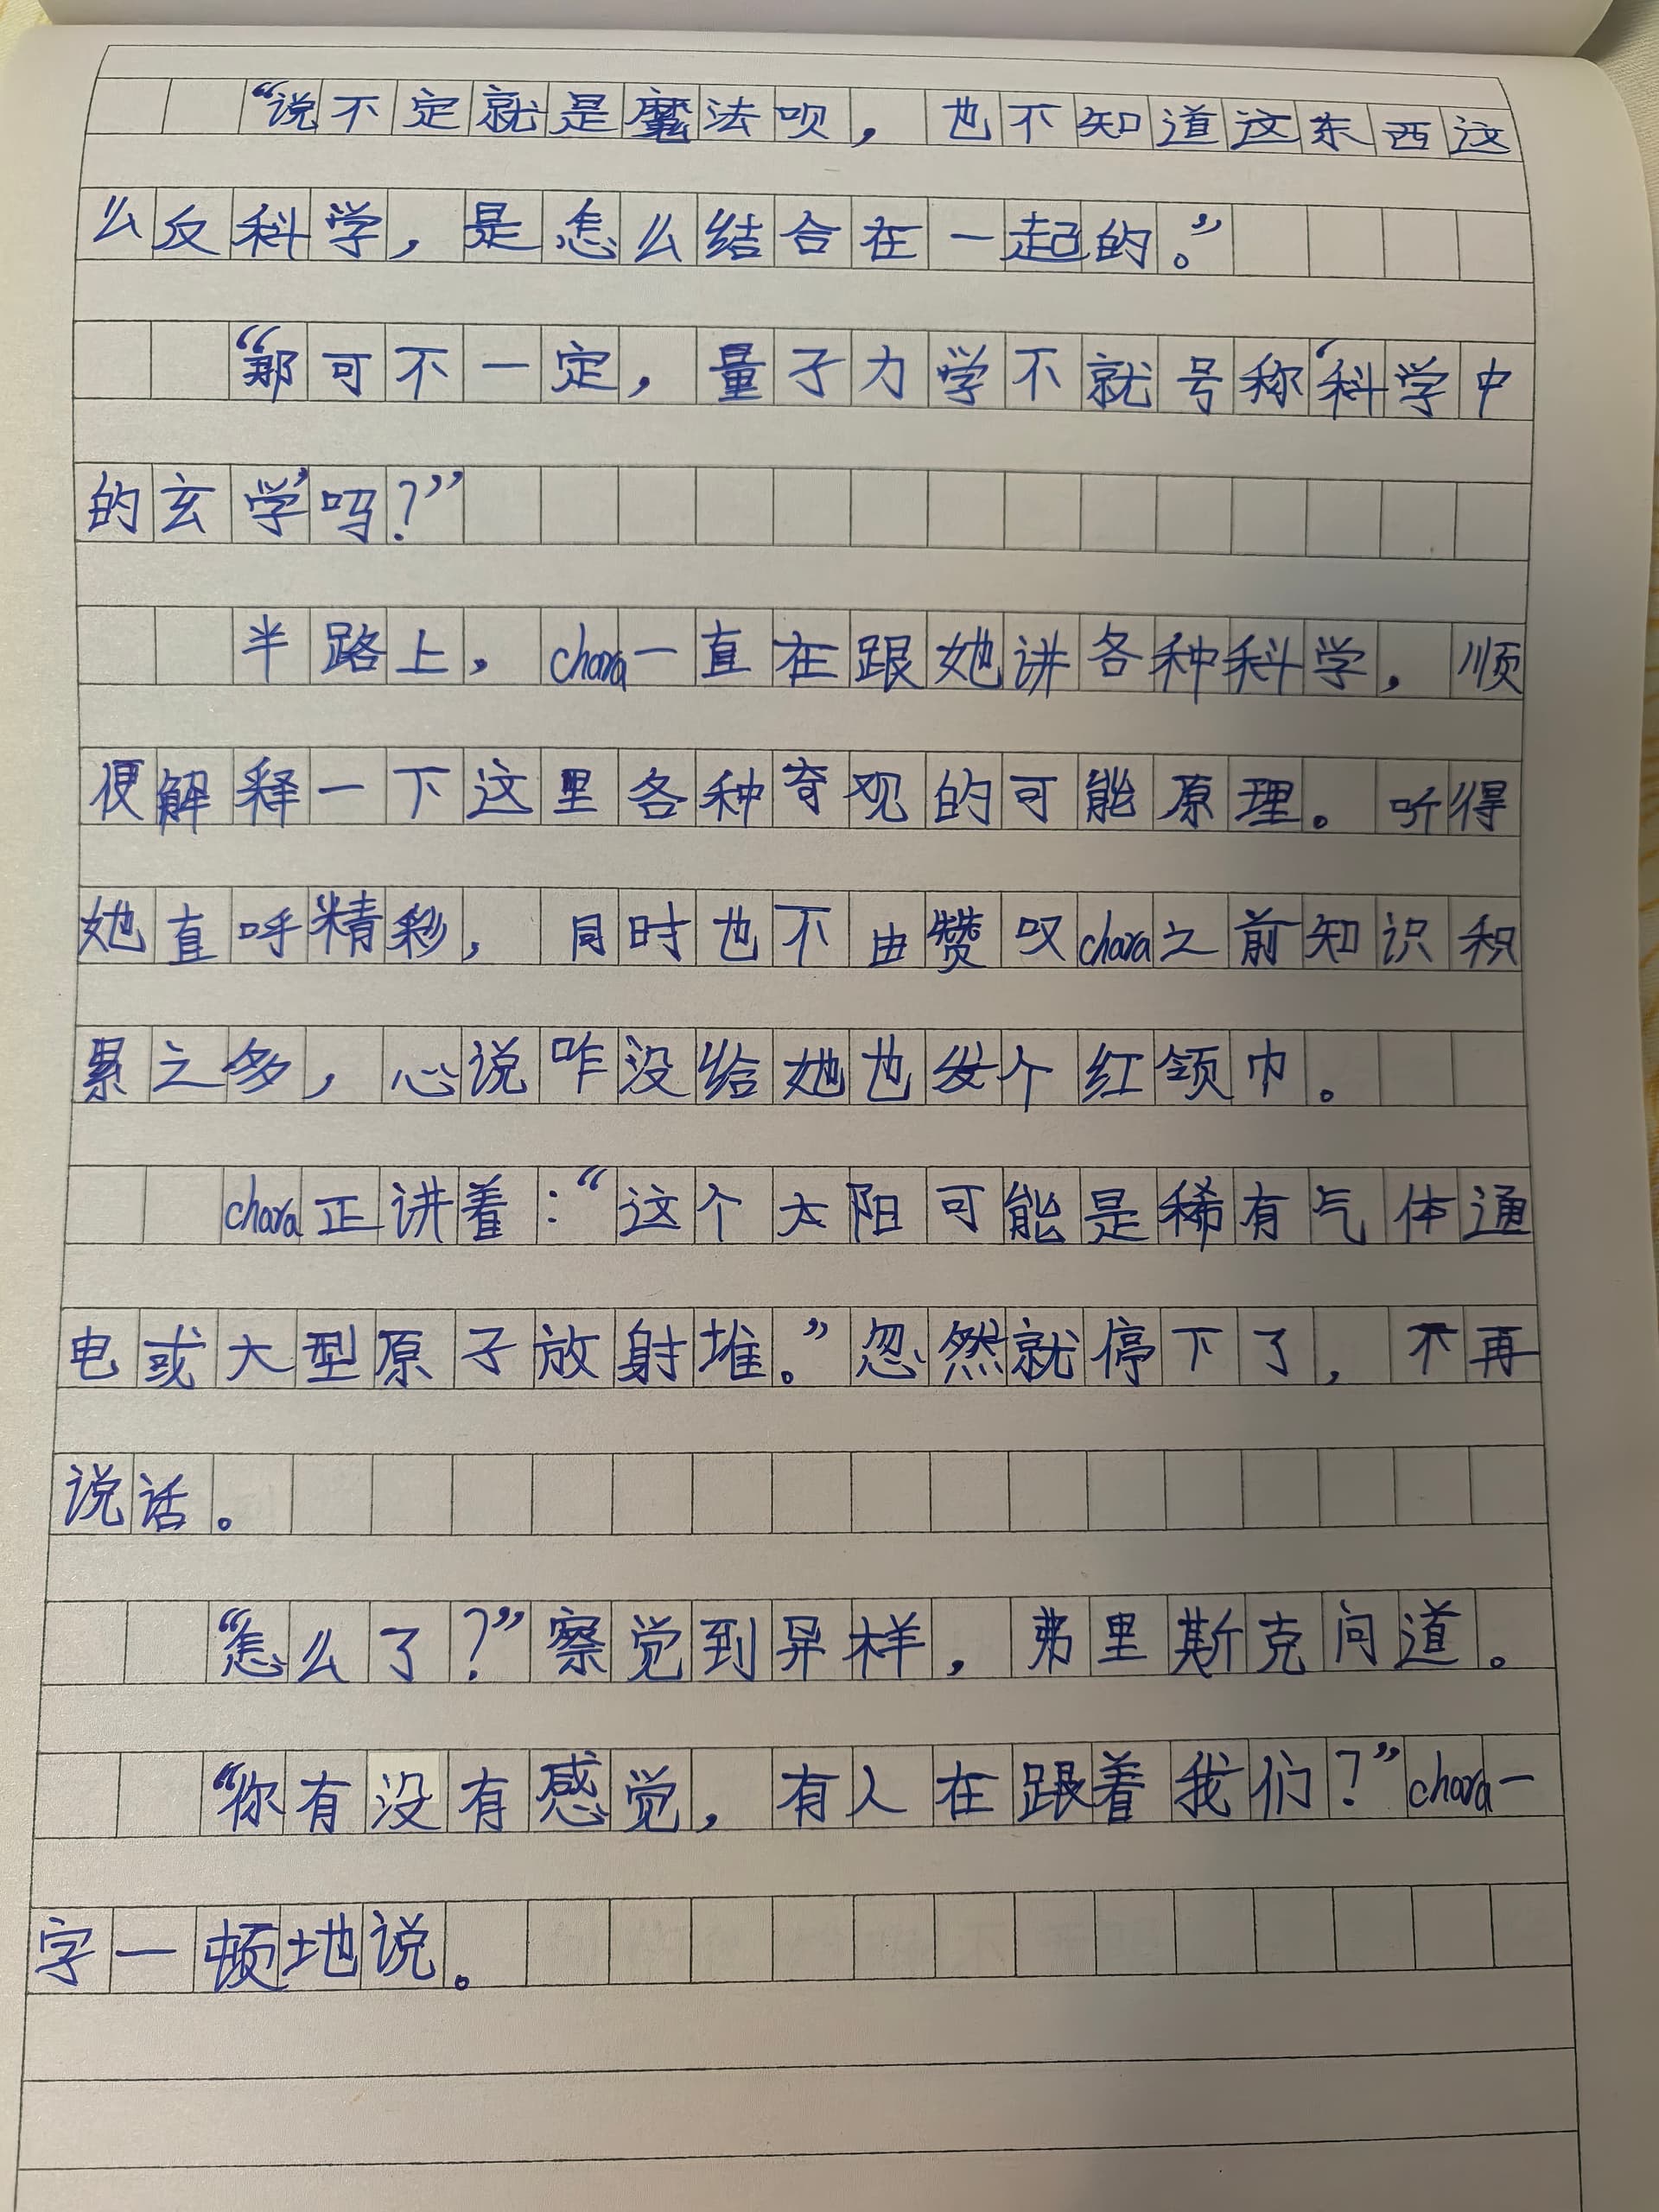 “说不定就是魔法呗，也不知道这东西这
么反科学，是怎么结合在一起的。”
“那可不一定，量子力学不就号称‘科学中
的玄学’吗？”
半路上，chara一直在跟她讲各种科学，顺
便解释一下这里各种奇观的可能原理。听得
她直呼精彩，同时也不由赞叹chara之前知识积
累之多，心说咋没给她也发个红领巾。
chara正讲着：“这个太阳可能是稀有气体通
电或大型原子放射堆。”忽然就停下了，不再
说话。
“怎么了？”察觉到异样，弗里斯克问道。
“你有没有感觉，有人在跟着我们？”chara一
字一顿地说。